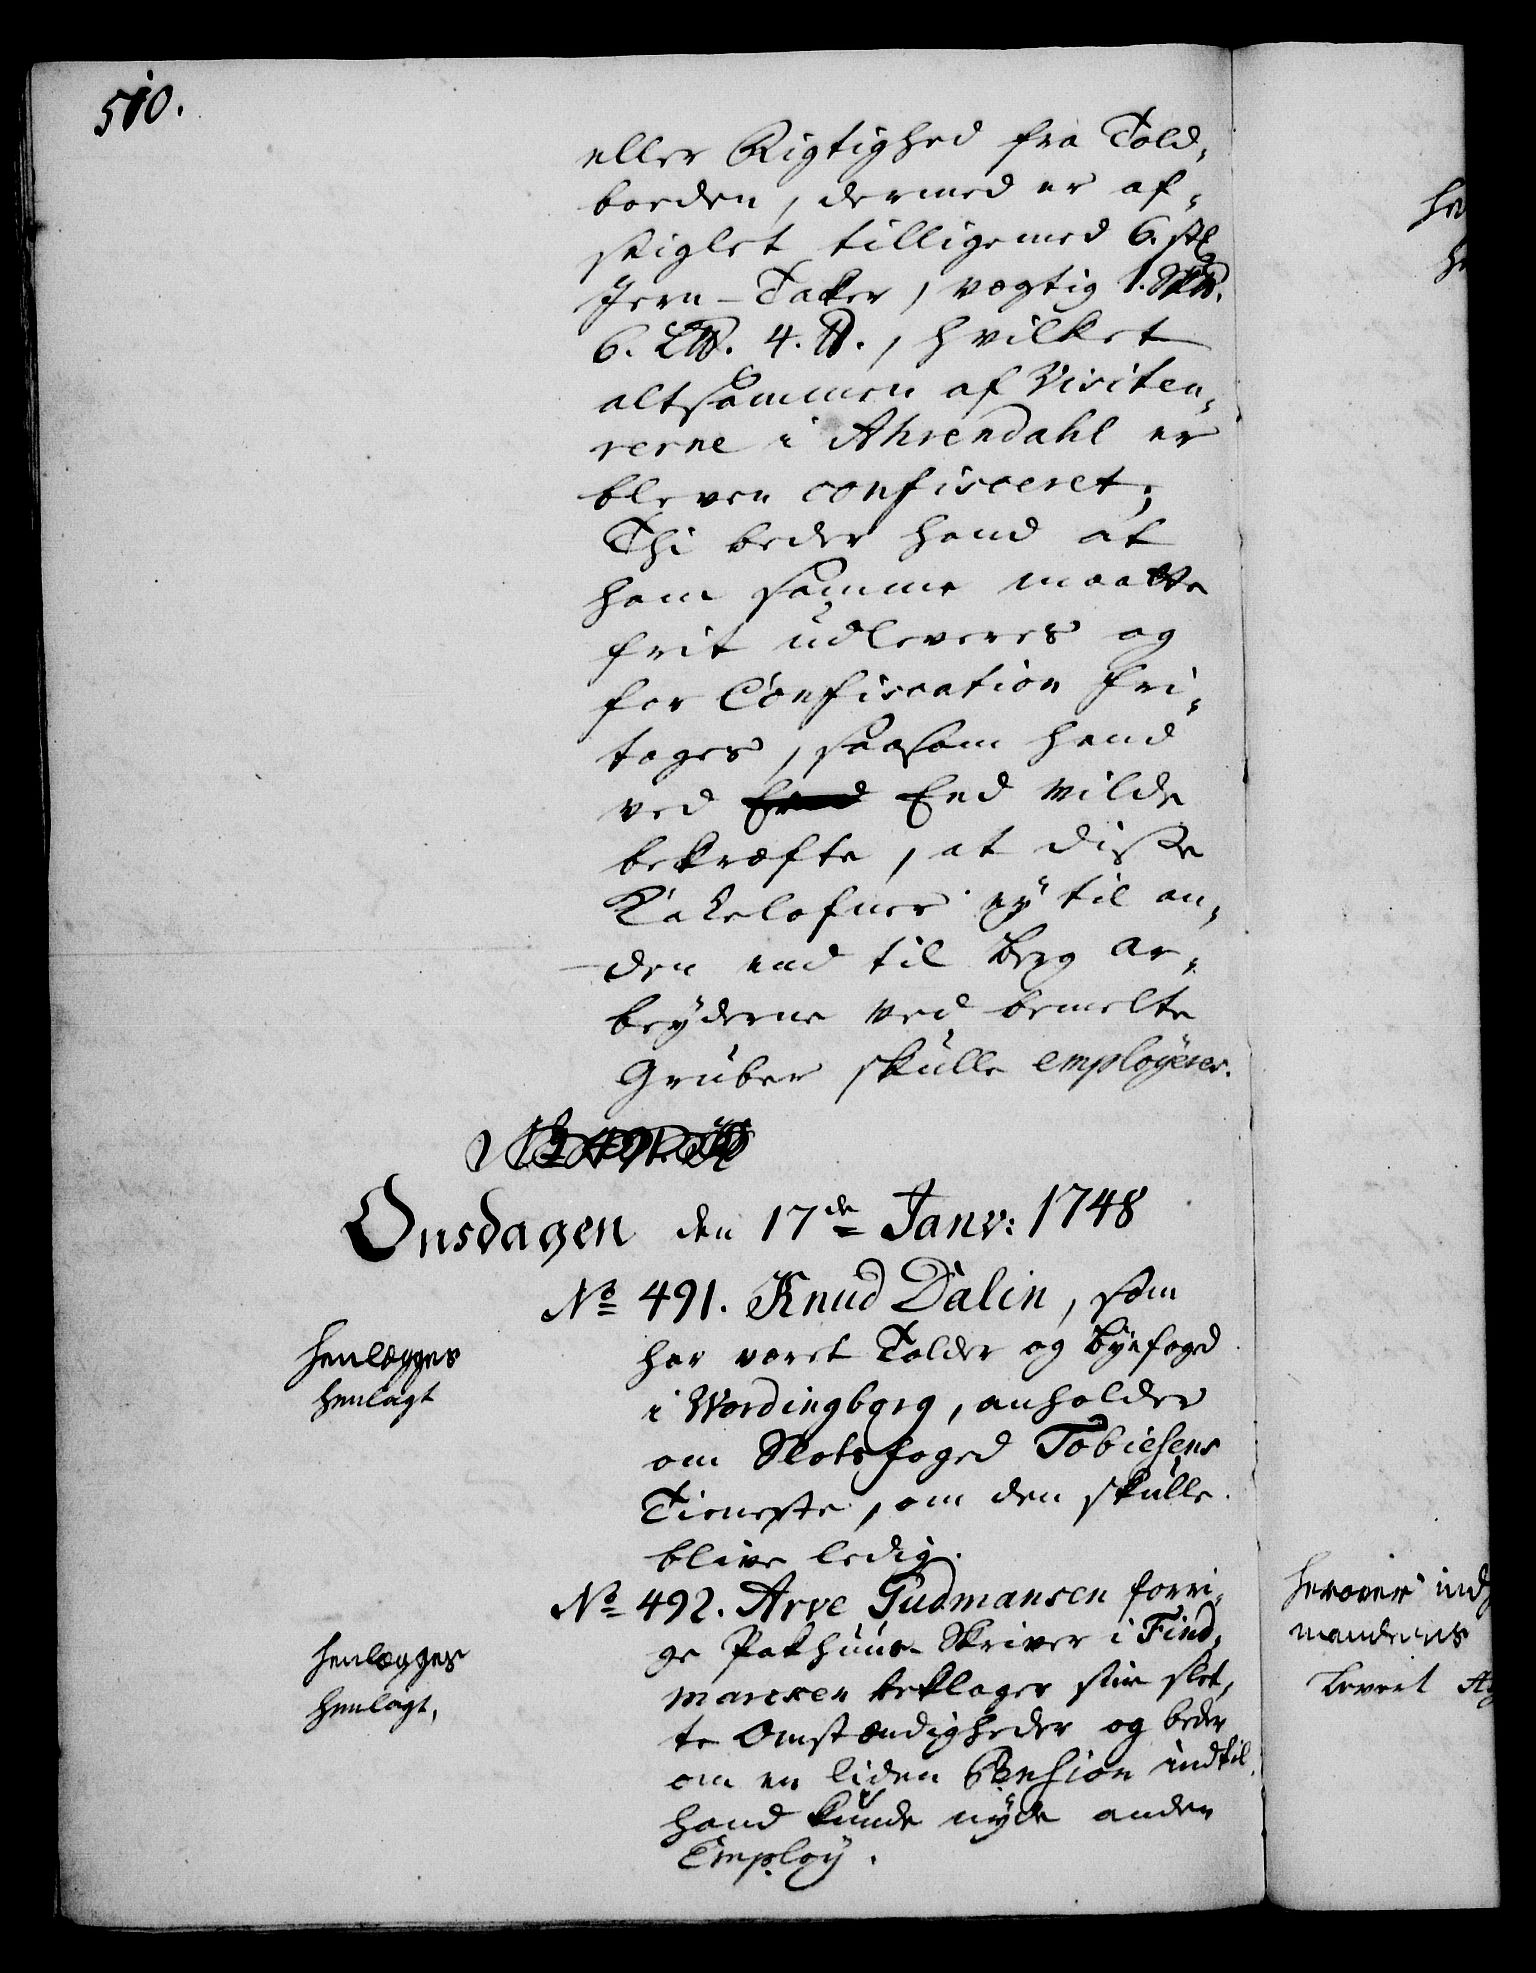 510.
eller Rigtighed fra Told-
boeden, dermed er af-
seiglet tilligemed 6. stk
Jern-Takker, vegtig 1. Sk℔.
6. L℔. 4. ℔., hvilket
altsammen af Visiteu-
rerne i Ahrendahl er
bleven confisceret;
Thi beder hand at
ham samme maatte
frit udleveres og
for Confiscation fri-
tages, saasom hand
ved Eed vilde
bekræfte, at disse
Kakelofner ey til an-
den end til Berg ar-
beyderne ved bemelte
Gruber skulle employeres.
Onsdagen den 17de Janv: 1748
No 491. Knud Dalin, som
har været Tolder og Byefoged
i Wordingborg, anholder
om Slotsfoged Tobiesens
Tieneste, om den skulle
blive ledig.
henlægges
henlagt
No 492. Arve Gudmansen forri-
ge Pakhuus-Skriver i Find-
marcken beklager sin slet-
te Omstændigheder og beder
om en liden Pension indtil
hand kunde nyde anden
Employ.
henlægges
henlagt,
herover ind
mandens
Levert